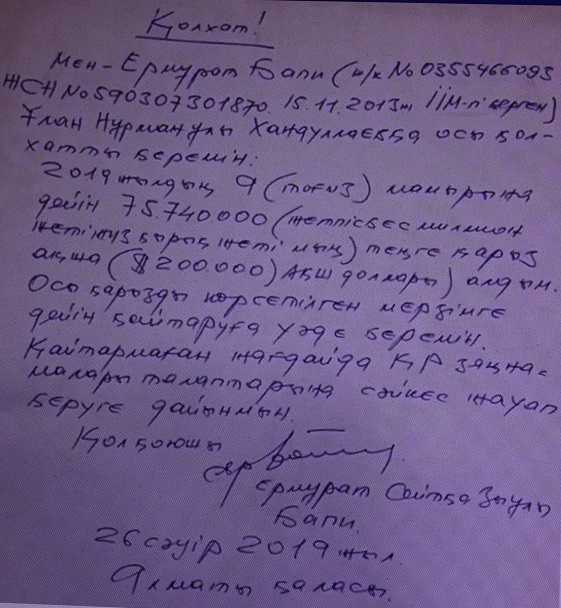 Қолхат!
Мен - Ермурат Бапи (ж/к №035546609З
ЖСН №590307301870. 15.11.2013ж ІІМ-п берген)
Ұлан Нұрманұлы Хандуллаевқа осы қол-
хатты беремін:
2019 жылдың 9 (тоғыз) мамырына
дейін 75.740000 (жетпісбес миллион
жетіжүз қырық жеті мың) теңге қарыз
ақша ($200.000) АҚШ доллары) алдым.
Осы қарызды көрсетілген мерзімге
дейін қайтаруға уәде беремін.
Қайтармаған жағдайда ҚР заңна-
малары талаптарына сәйкес жауап
беруге дайынмын.
Қолқоюшы
Ермурат Сейтқазыұлы
Бапи.
26 сәуір 2019 жыл.
Алматы қаласы.